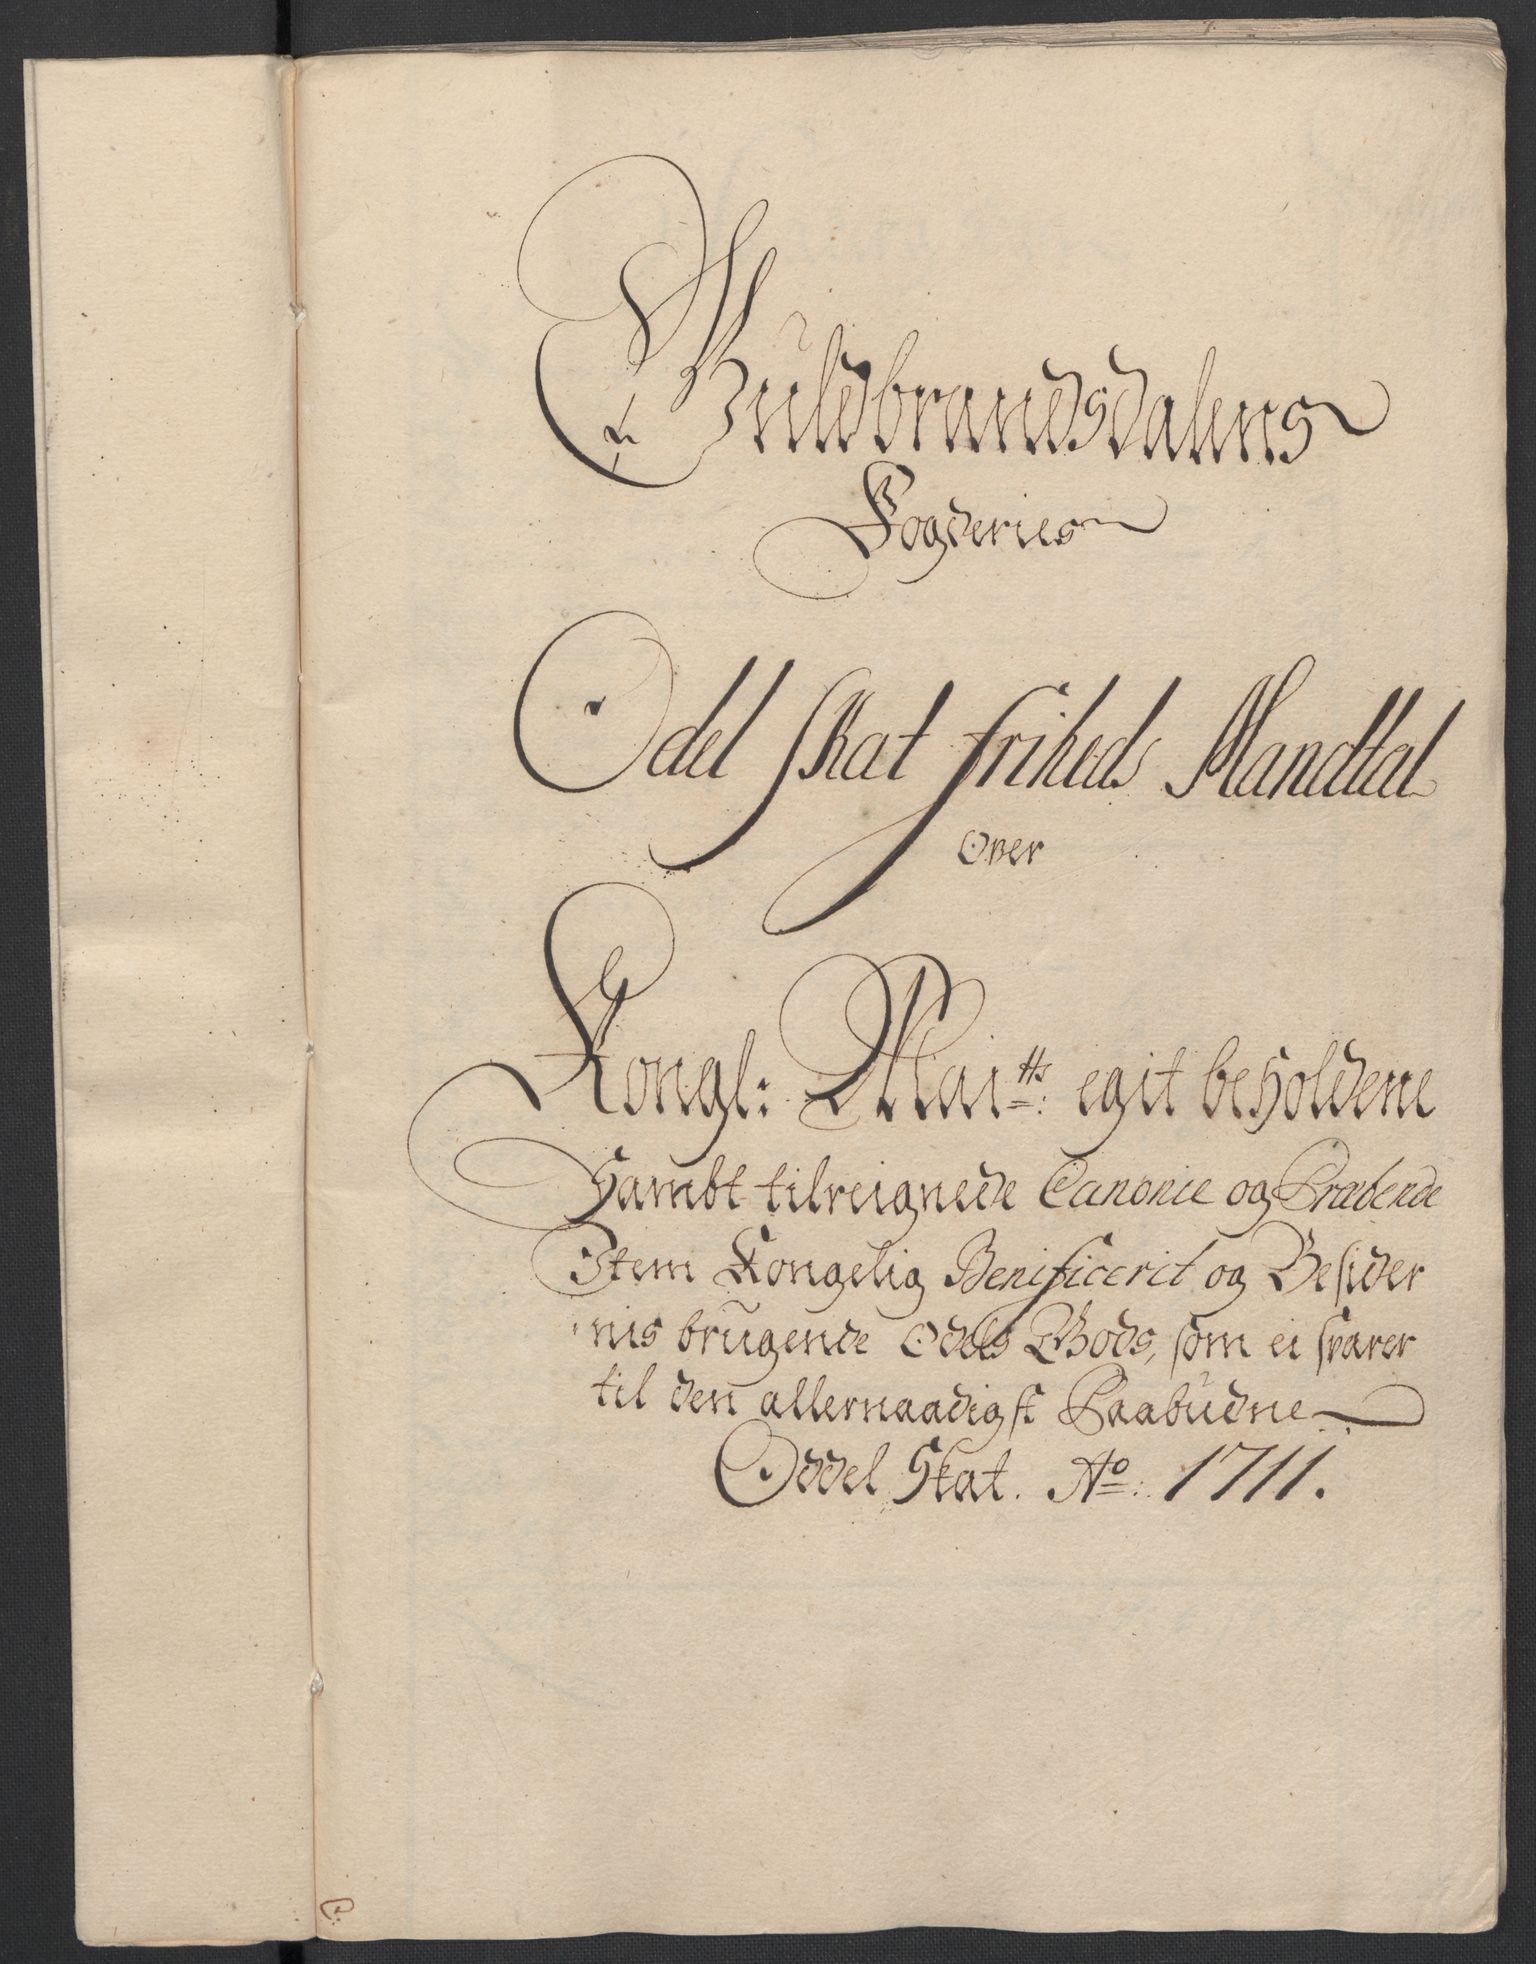 Guldbrandsdalens
Fogderies
Odel Skat friheds Mandtal
Over
Kongl: Mai^tts: egit beholdene
Sambt tilreignede Canonie og Præbende
Item Kongelig Benificerit og Besider
nis brugende Odels Gods, som ei svarer
til den allernaadigst Paabudne
Oddel Skat. A^o: 1711.